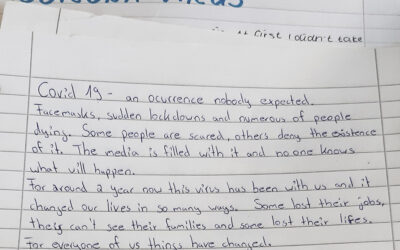 at first I didn't take
Covid 19 - an ocurrence nobody expected.
Facemasks, sudden lockdowns and numerous of people
dying. Some people are scared, others deny the existence
of it. The media is filled with it and no one knows
what will happen.
For around a year now this virus has been with us and it
changed our lives in so many ways. Some lost their jobs,
they can't see their families and some lost their lifes.
For everyone of us things have changed.